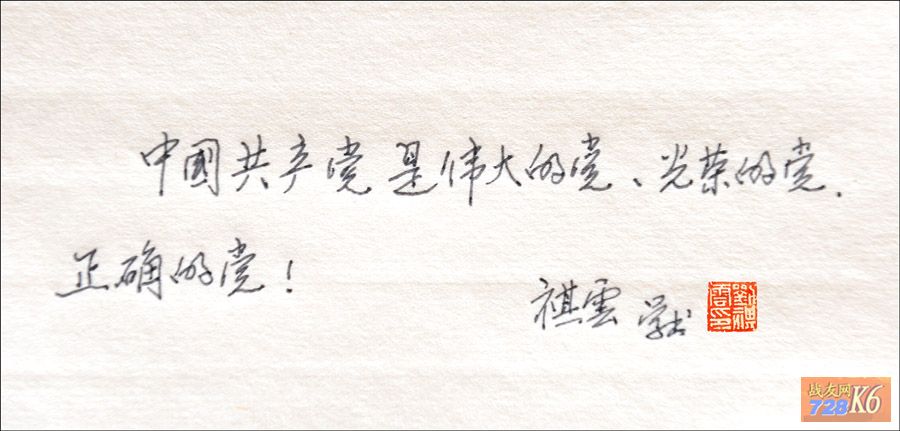 中國共产党是伟大的党、光荣的党、
正确的党！
祺雲 学书
劉祺雲印
战友网
728K6